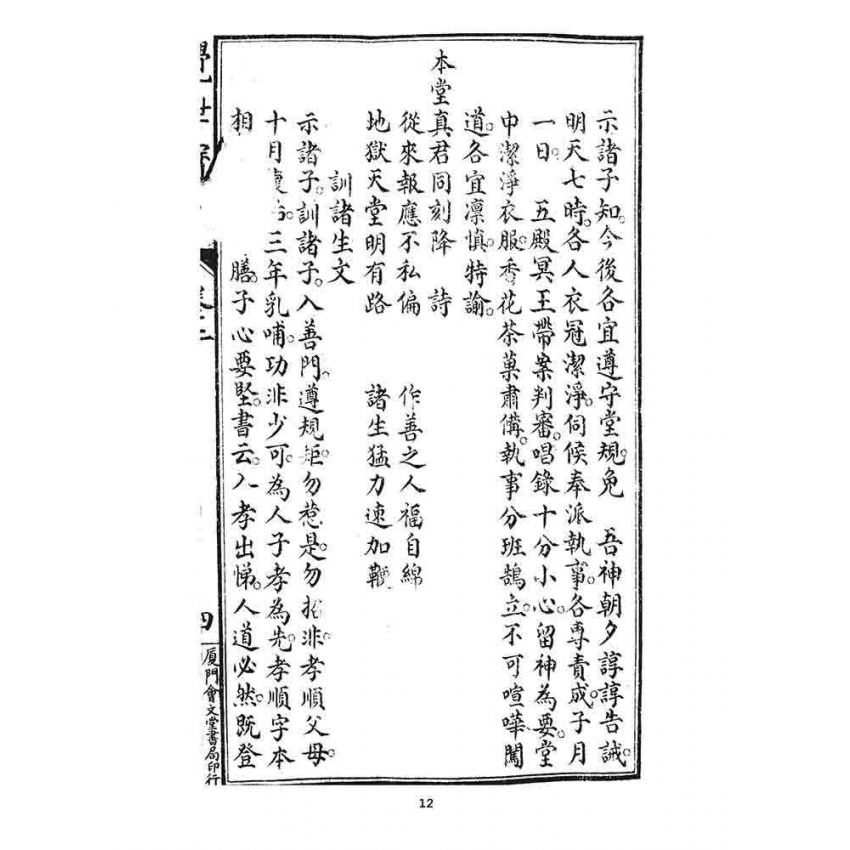 示諸子知。今後各宜遵守堂規。免　吾神朝夕諄諄告誡。
明天七時。各人衣冠潔淨。伺候奉派執事。各專責成。子月
一日。　五殿冥王帶案判審。唱錄十分小心。留神為要。堂
中潔淨衣服。香花茶菓肅備。執事分班鵠立。不可喧嘩闖
道。各宜凛慎。特諭。
本堂真君同刻降　詩
從來報應不私偏　作善之人福自綿
地獄天堂明有路　諸生猛力速加鞭
訓諸生文
示諸子。訓諸子。入善門。遵規矩。勿惹是。勿招非。孝順父母。
十月懷胎。三年乳哺。功非少可。為人子孝為先。孝順字本
相　膳。子心要堅。書云。入孝出悌。人道必然。既登
覺世　卷二
四
厦門會文堂書局印行
12